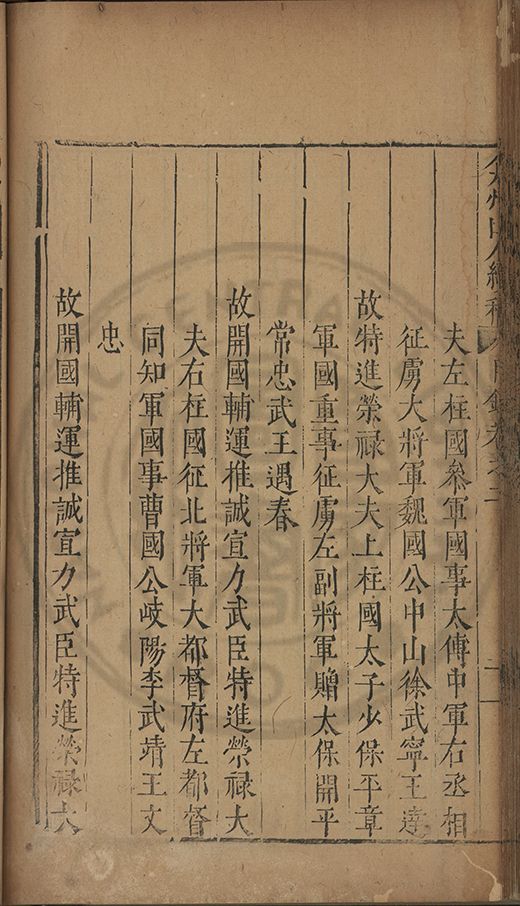 夫左柱國叅軍國事太傅中軍右丞相
征虜大將軍魏國公中山徐武寧王達
故特進榮禄大夫上柱國太子少保平章
軍國重事征虜左副將軍贈太保開平
常忠武王遇春
故開國輔運推誠宣力武臣特進榮禄大
夫右柱國征北將軍大都督府左都督
同知軍國事曹國公岐陽李武靖王文
忠
故開國輔運推誠宣力武臣特進榮禄大